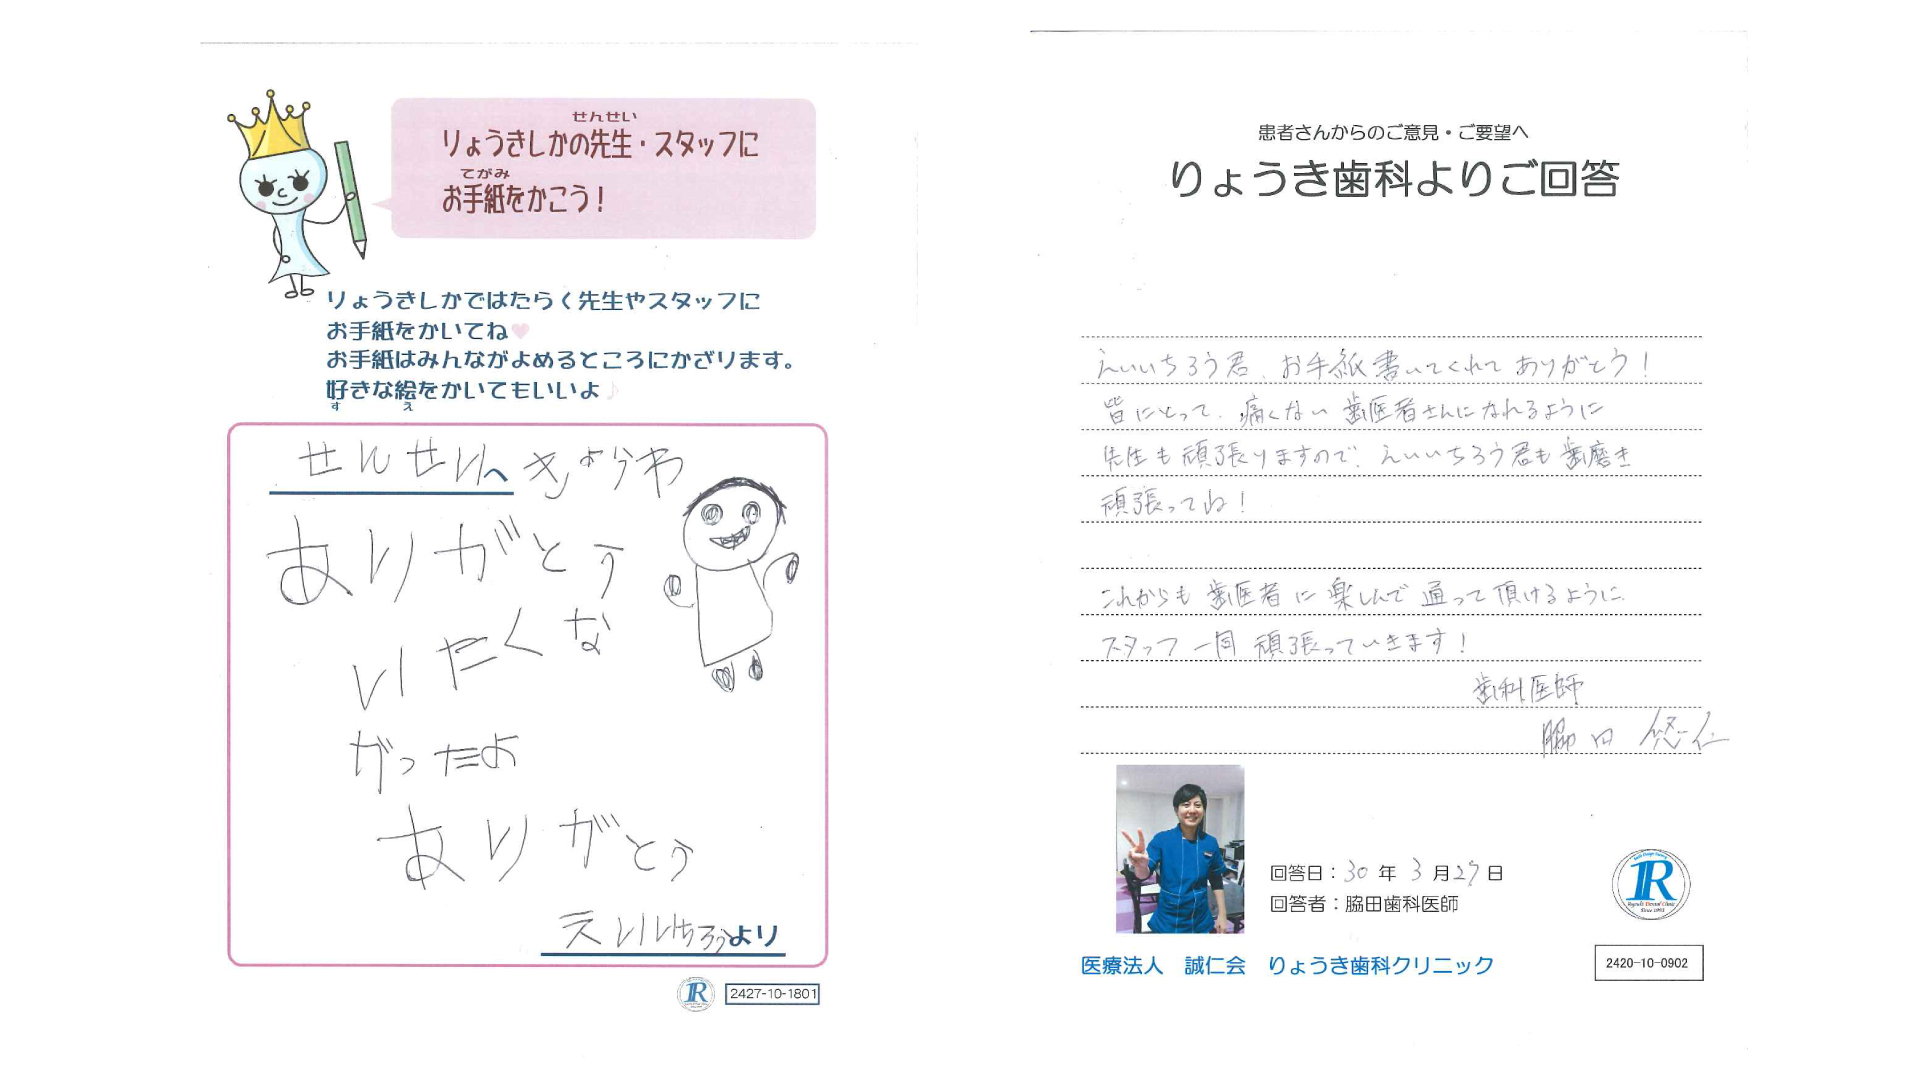 せんせい
りょうきしかの先生・スタッフに
てがみ
お手紙をかこう！
りょうきしかではたらく先生やスタッフに
お手紙をかいてね♥
お手紙はみんながよめるところにかざります。
好きな絵をかいてもいいよ♪
す え
せんせいへ きょうわ
ありがとう
いたくな
がったよ
ありがとう
えいいちろうより
2427-10-1801
患者さんからのご意見・ご要望へ
りょうき歯科よりご回答
えいいちろう君、お手紙書いてくれてありがとう！
皆にとって、痛くない歯医者さんになれるように
先生も頑張りますので、えいいちろう君も歯磨き
頑張ってね！
これからも歯医者に楽しんで通って頂けるように
スタッフ一同頑張っていきます！
歯科医師
脇田 悠仁
回答日：30年3月27日
回答者：脇田歯科医師
医療法人 誠仁会 りょうき歯科クリニック
2420-10-0902